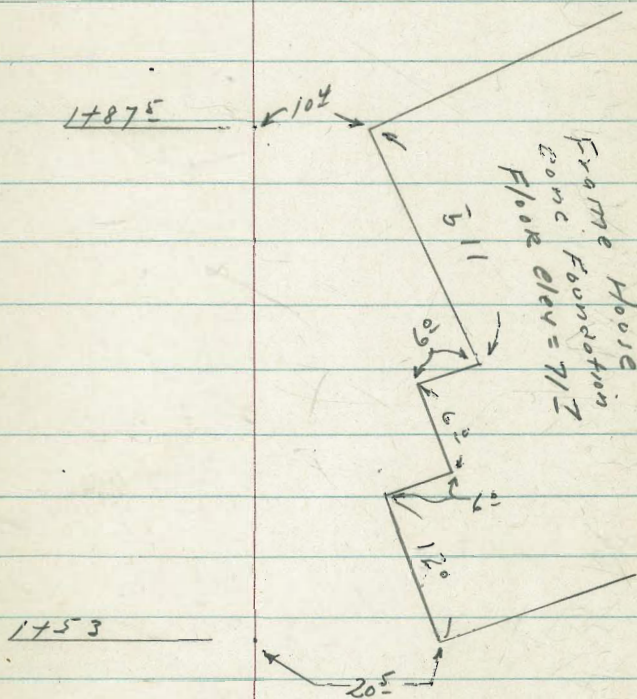 1+87⁵
10⁴
Frame House
Conc Foundation
Floor elev = 71⁷
6⁰
6⁰
6⁰
12⁰
1+53
20⁵